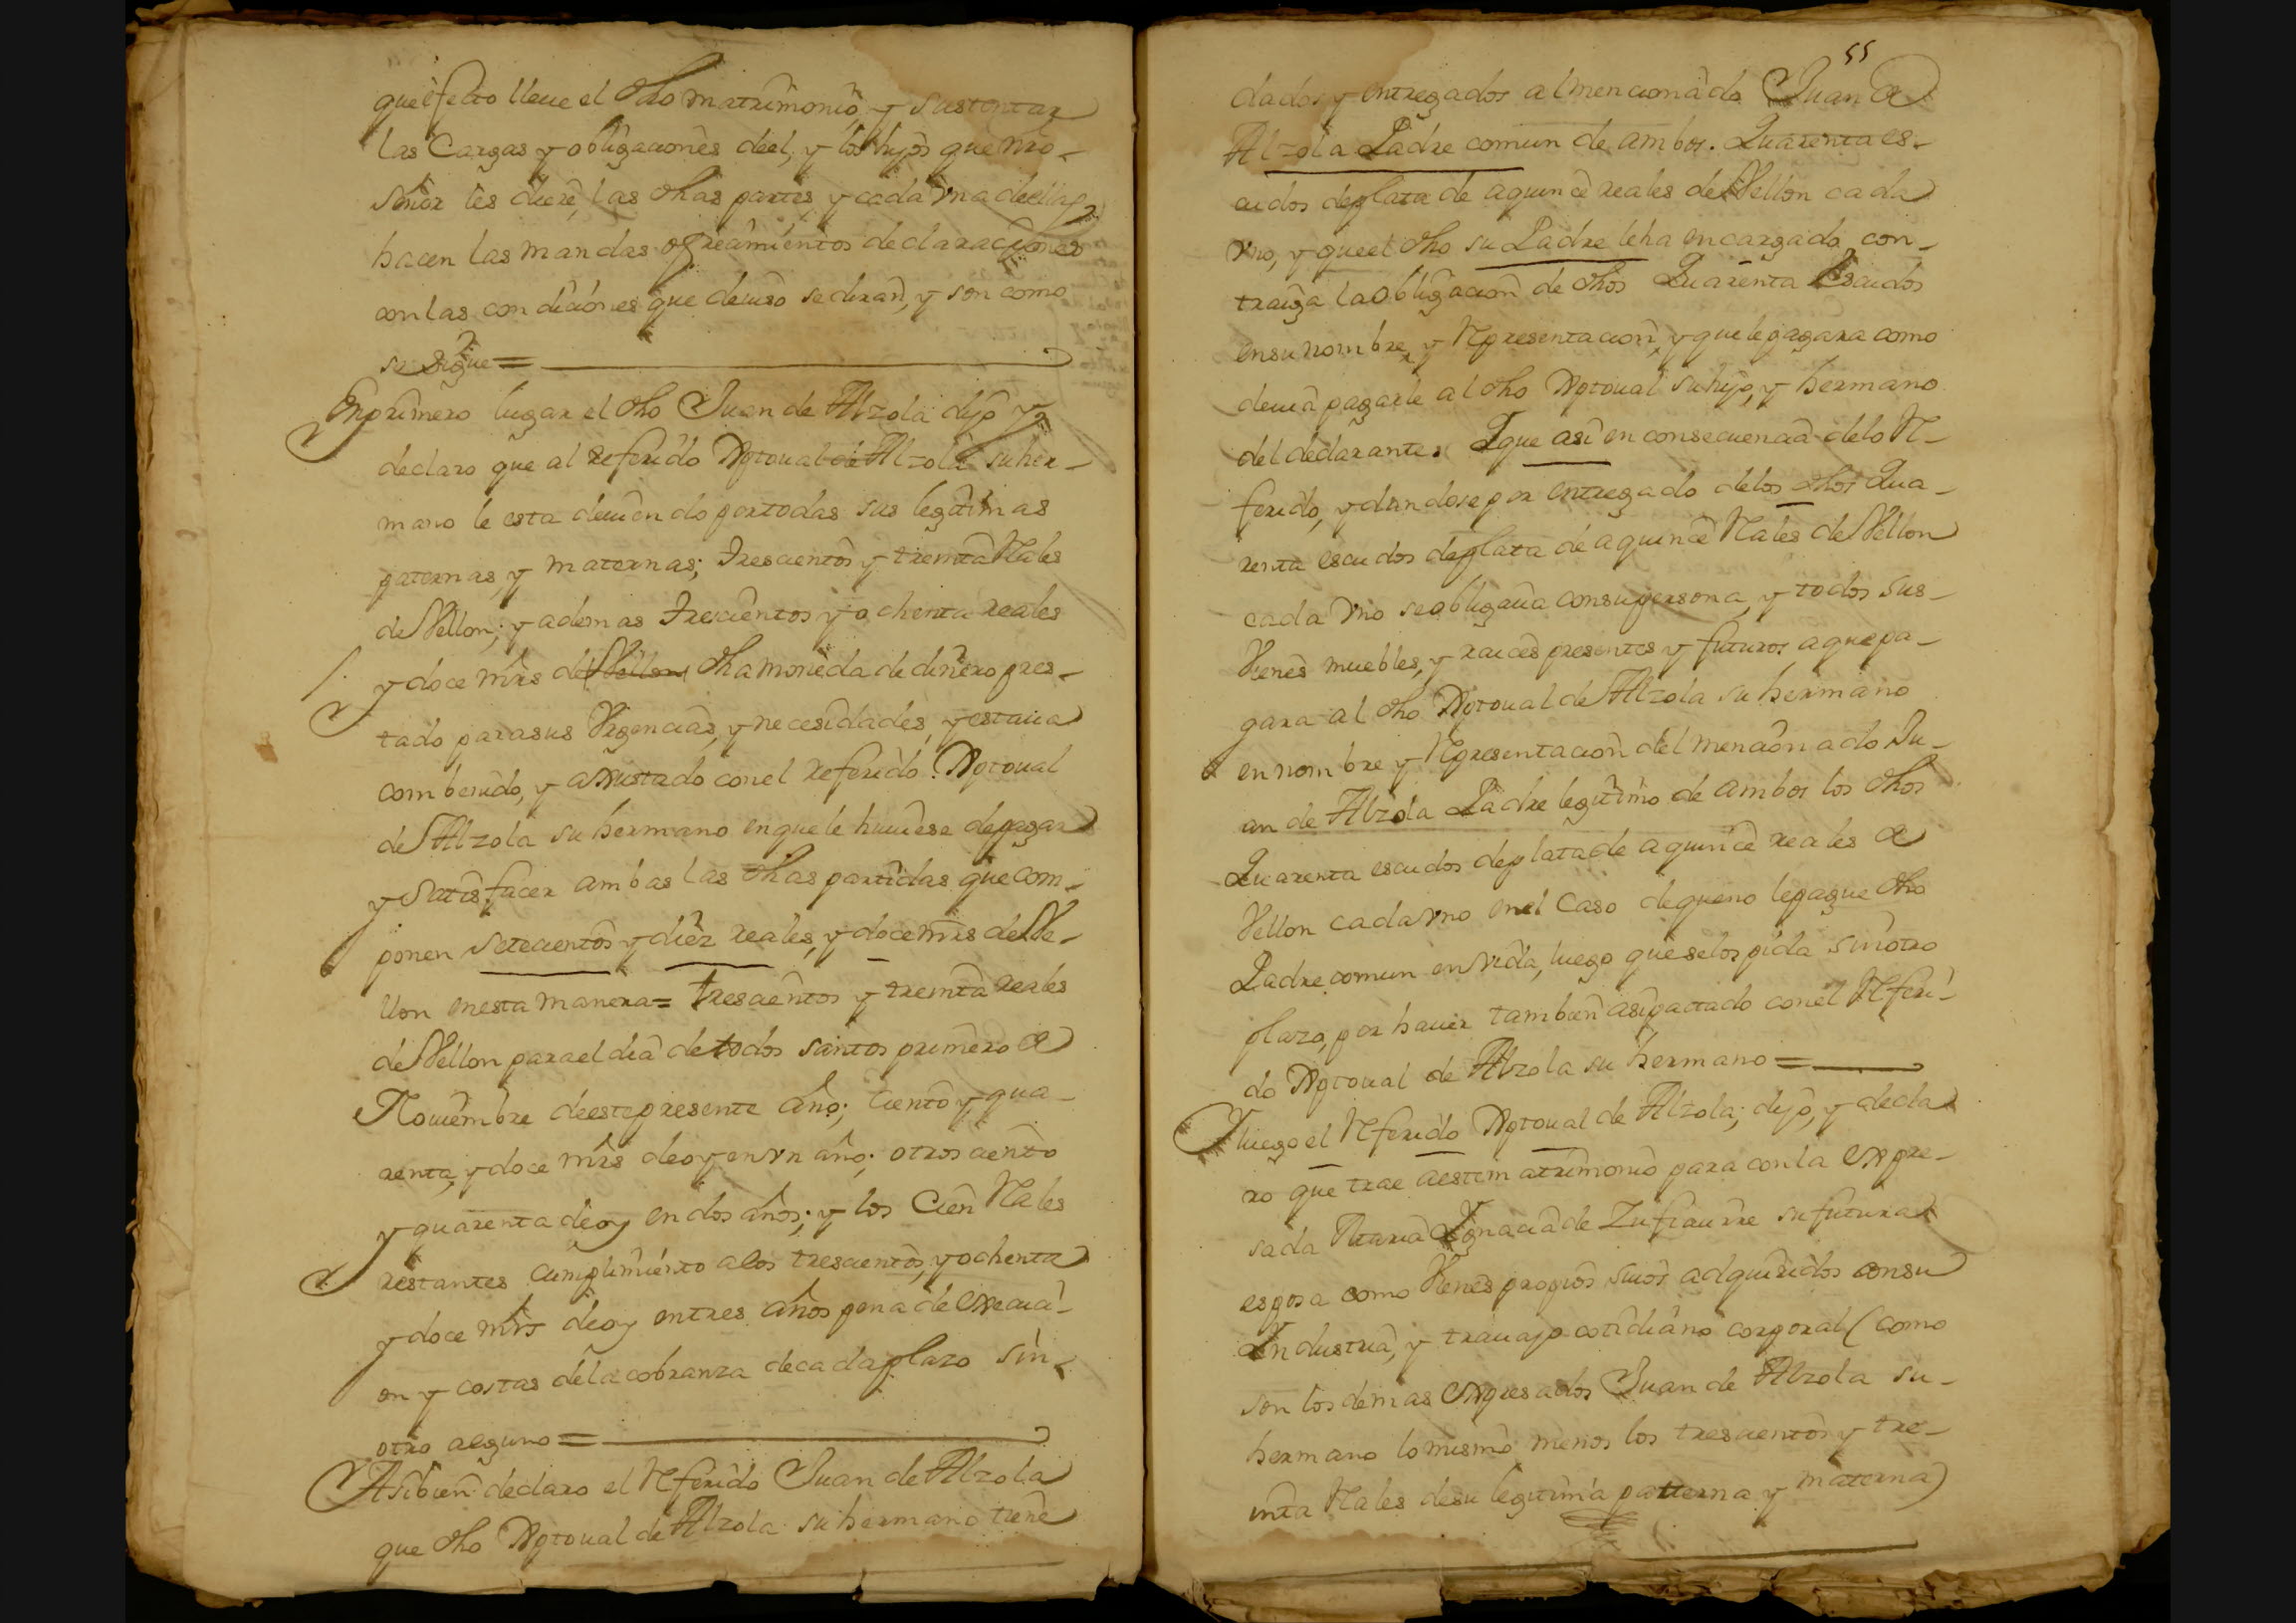 que efecto lleue el dho matrimonio, y sustentar
las Cargas y obligaciones deel, y los hijos que nro
señor les diere, las dhas partes, y cada vna deellas
hacen las mandas ofrecimientos declaraciones
con las condiciones que deiuso se diran, y son como
se sigue =
En primero lugar el dho Juan de Alzola dijo y
declaro que al referido Xptoual de Alzola su her-
mano le esta deuiendo por todas sus legitimas
paternas, y maternas; trescientos y treinta Rales
de Vellon; y ademas trescientos y ochenta reales
y doce mrs de Vellon dha moneda de dinero pres-
tado para sus Vrgencias, y necesidades, y estaua
combenido, y axustado con el referido Xptoual
de Alzola su hermano en que le huuiese de pagar
y satisfacer ambas las dhas partidas que com-
ponen setecientos y diez reales, y doce mrs de Ve-
llon en esta manera = trescientos y treinta reales
de Vellon para el dia de todos santos primero de
Nouiembre de este presente año; ciento y qua-
renta, y doce mrs de oy en vn año; otros ciento
y quarenta de oy en dos años; y los Cien Rales
restantes cumplimiento a los trescientos, y ochenta
y doce mrs de oy en tres años pena de execuci-
on y costas de la cobranza de cada plazo sin
otro alguno =
Asi bien declaro el Referido Juan de Alzola
que dho Xptoual de Alzola su hermano tiene
55
dados y entregados al mencionado Juan de
Alzola Padre comun de ambos. Quarenta es-
cudos de plata de a quince reales de Vellon cada
vno, y que el dho su Padre le ha encargado con-
traiga la obligacion de dhos Quarenta Escudos
en su nombre, y Representacion, y que le pagara como
deuia pagarle al dho Xptoual su hijo, y hermano
del declarante. Que asi en consecuencia de lo Re-
ferido, y dandose por entregado de los dhos Qua-
renta escudos de plata de a quince Rales de Vellon
cada vno se obligaua con su persona, y todos sus
Vienes muebles, y raices presentes y futuros a que pa-
gara al dho Xptoual de Alzola su hermano
en nombre y Representacion del mencionado Ju-
an de Alzola Padre legitimo de ambos los dhos
Quarenta escudos de plata de a quince reales de
Vellon cada vno en el Caso de que no le pague dho
Padre comun en vida, luego que se los pida sin otro
plazo, por hauer tambien asi pactado con el Referi-
do Xptoual de Alzola su hermano =
Y luego el Referido Xptoual de Alzola; dijo, y decla
ro que trae a este matrimonio para con la expre-
sada Maria Ignacia de Zufiaurre su futura
esposa como Vienes propios suios adquiridos con su
Industria, y trauajo cotidiano corporal (como
son los demas expresados Juan de Alzola su
hermano lo mismo menos los trescientos y tre-
inta Rales de su legitima paterna y materna)